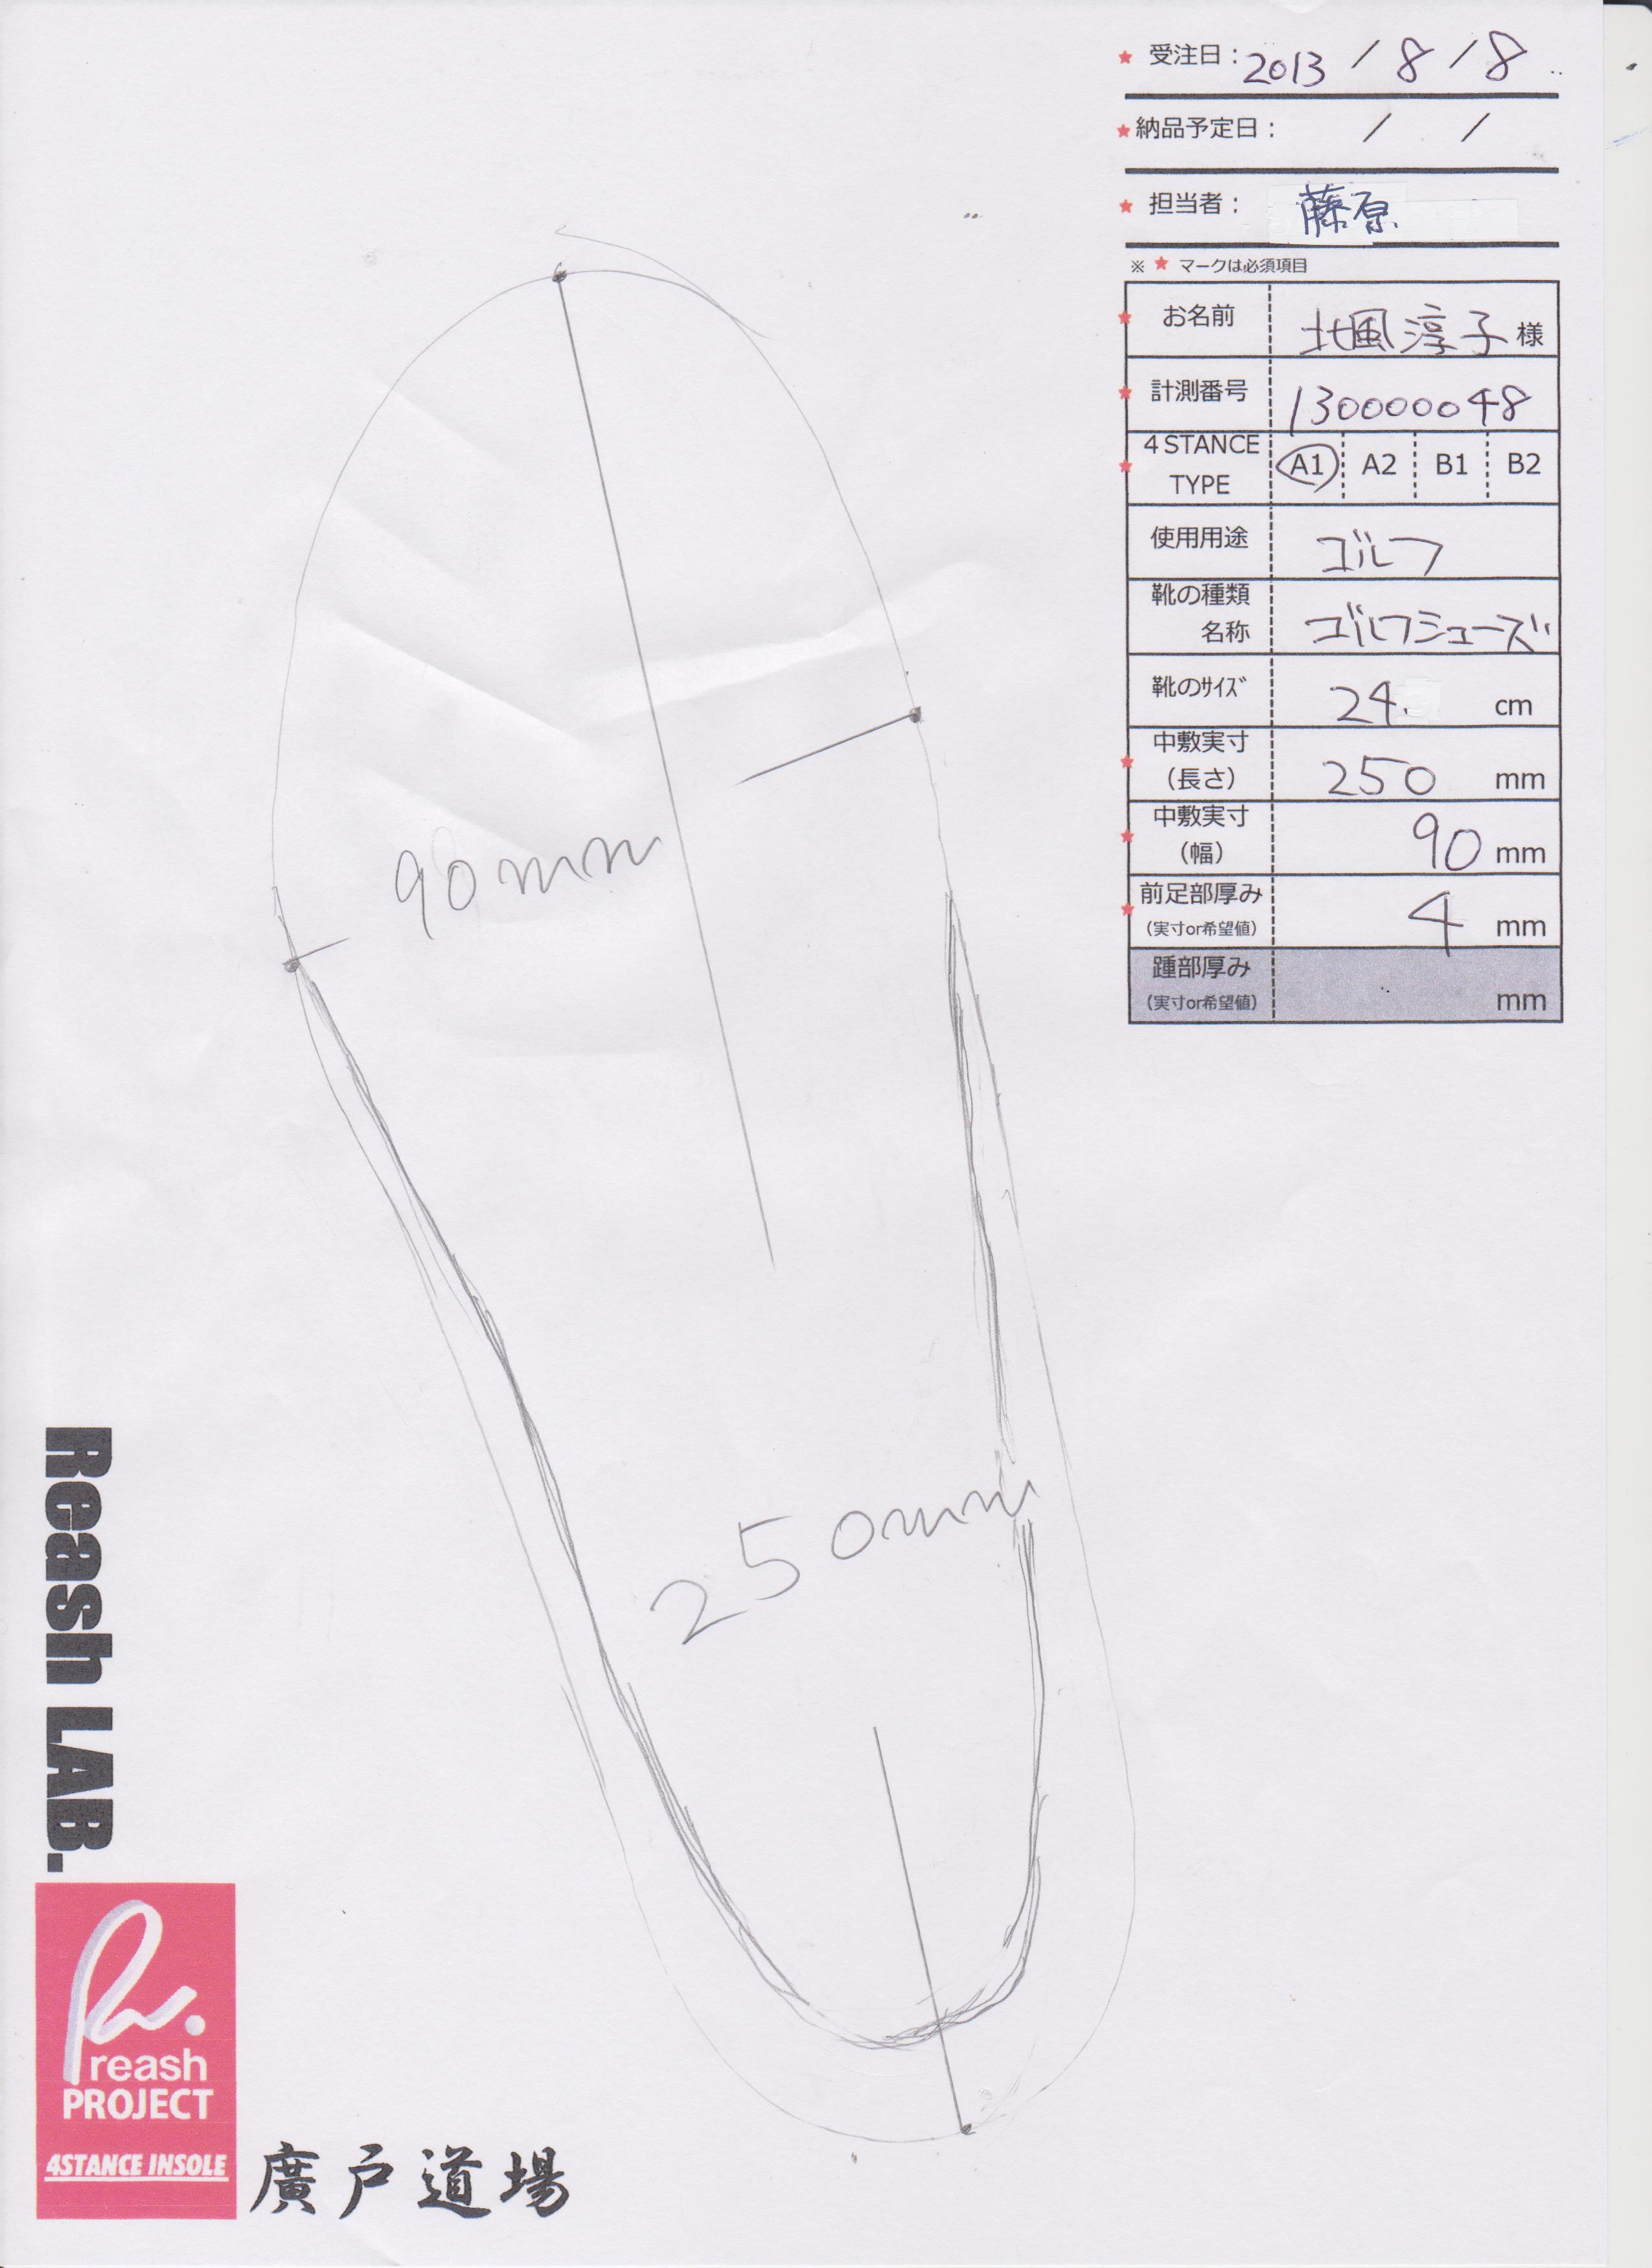 ★ 受注日： 2013 / 8 / 8
★ 納品予定日： / /
★ 担当者： 藤原
※ ★ マークは必須項目
★ お名前 北風淳子 様
★ 計測番号 130000048
★ 4STANCE TYPE A1 A2 B1 B2
使用用途 ゴルフ
靴の種類
名称 ゴルフシューズ
靴のサイズ 24. cm
★ 中敷実寸
（長さ） 250 mm
★ 中敷実寸
（幅） 90 mm
★ 前足部厚み 4 mm
（実寸or希望値）
踵部厚み
（実寸or希望値） mm
90mm
250mm
Reash LAB.
R.
reash
PROJECT
4STANCE INSOLE
廣戸道場